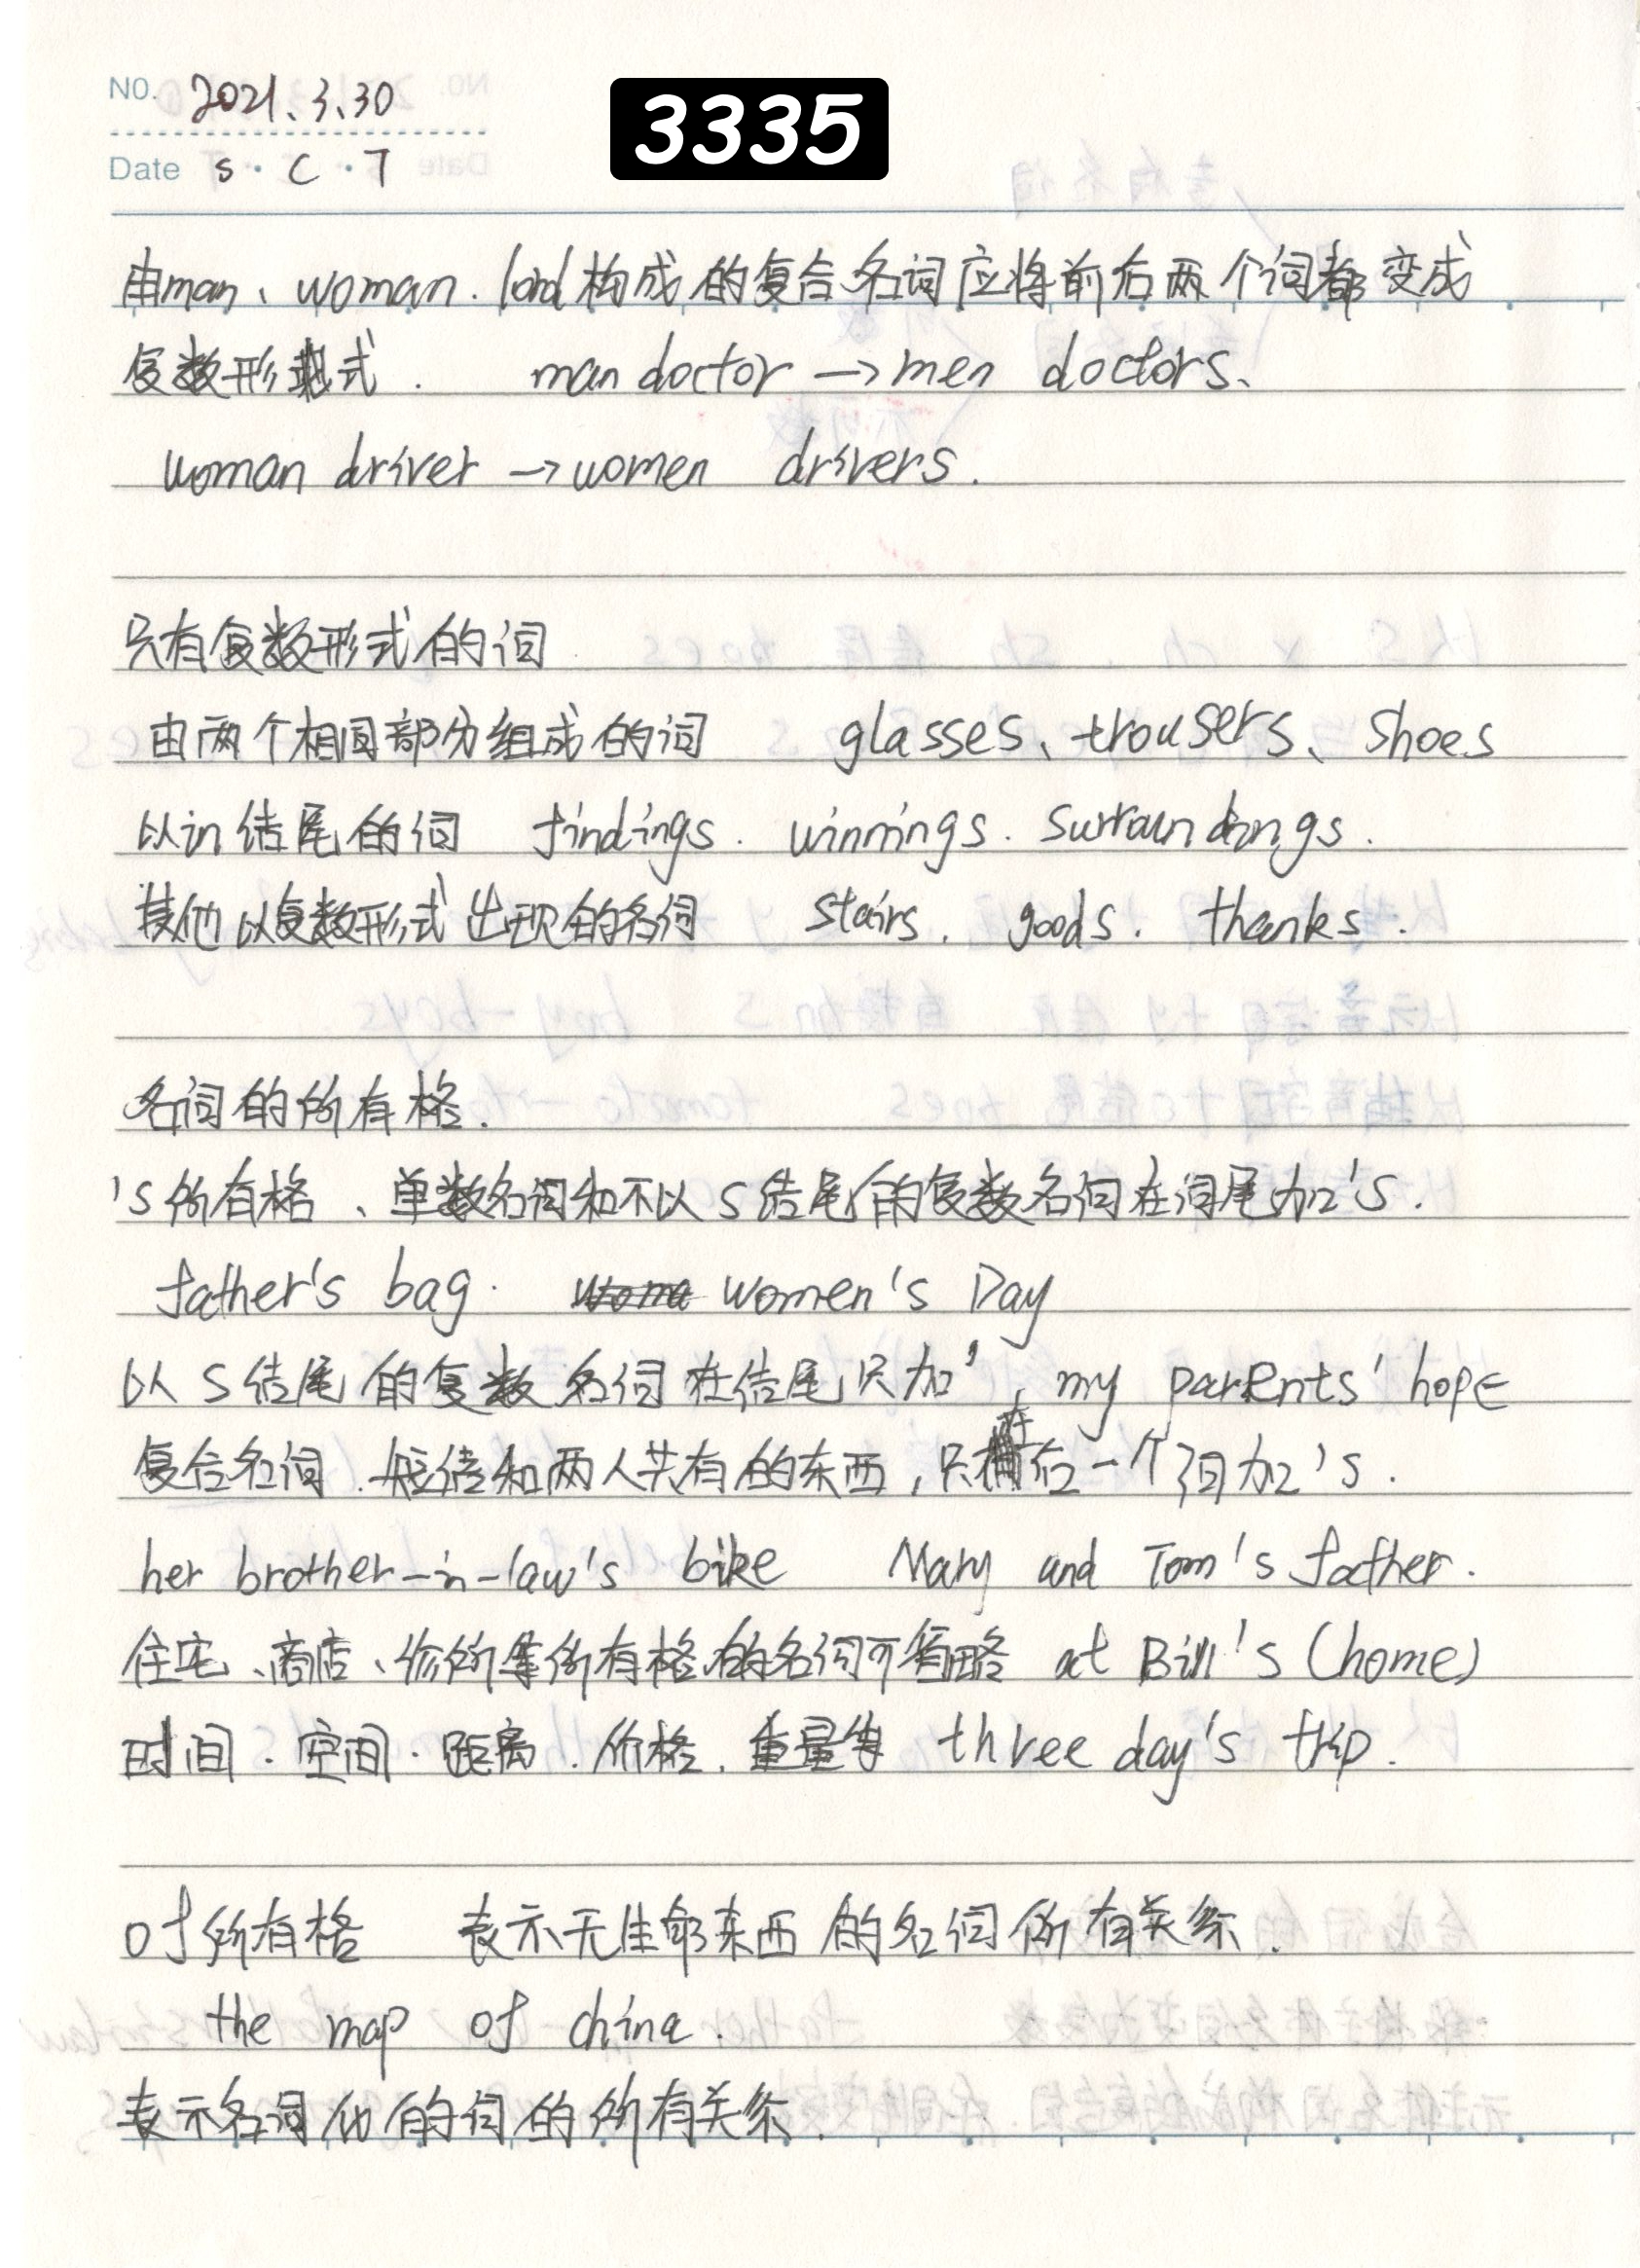 NO. 2021.3.30
3335
Date S·C·T
由man、woman.lord构成的复合名词应将前后两个词都变成
复数形式. man doctor→men doctors、
woman driver→women drivers.
只有复数形式的词
由两个相同部分组成的词 glasses、trousers、shoes
以in结尾的词 findings. winnings. surroundings.
其他以复数形式出现的名词 stairs. goods. thanks.
名词的所有格.
's所有格、单数名词和不以s结尾的复数名词在词尾加's.
father's bag. women's Day
以s结尾的复数名词在结尾只加', my parents' hope
复合名词. 和两人共有的东西,只在后一个词加's.
her brother-in-law's bike Mary and Tom's father.
住宅、商店、诊所等所有格的名词可省略 at Bill's (home)
时间.空间.距离.价格.重量等 three day's trip.
of所有格 表示无生命东西的名词所有关系.
the map of china.
表示名词化的词的所有关系.